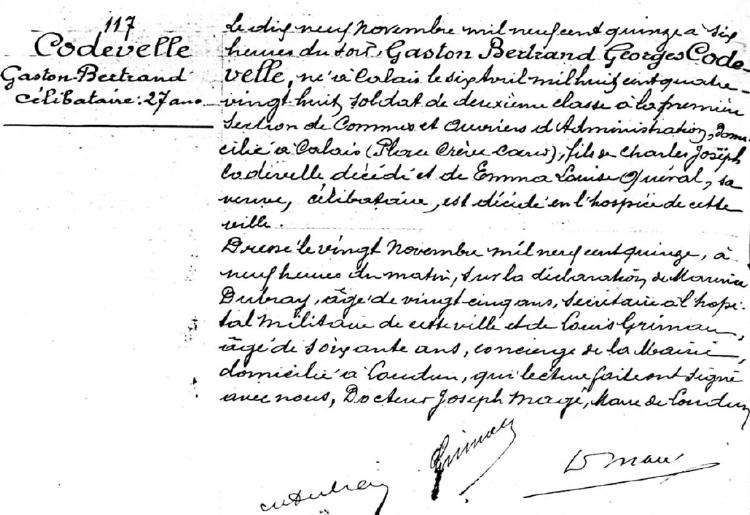 117
Codevelle
Gaston-Bertrand
célibataire: 27 ans
Le dix neuf Novembre mil neuf cent quinze à six
heures du soir, Gaston Bertrand Georges Code-
velle, né à Calais le six Avril mil huit cent quatre-
vingt huit, soldat de deuxième classe à la première
Section de Commis et Ouvriers d'Administration, domi-
cilié à Calais (Place Crèvecœur), fils de Charles Joseph
Codevelle décédé et de Emma Louise Quéral, sa
veuve, célibataire, est décédé en l'hospice de cette
ville.
Dressé le vingt Novembre mil neuf cent quinze, à
neuf heures du matin, sur la déclaration de Maurice
Dubray, âgé de vingt cinq ans, secrétaire à l'hôpi-
tal militaire de cette ville et de Louis Grimau,
âgé de soixante ans, concierge de la Mairie,
domiciliés à Loudun, qui lecture faite ont signé
avec nous, Docteur Joseph Magé, Maire de Loudun